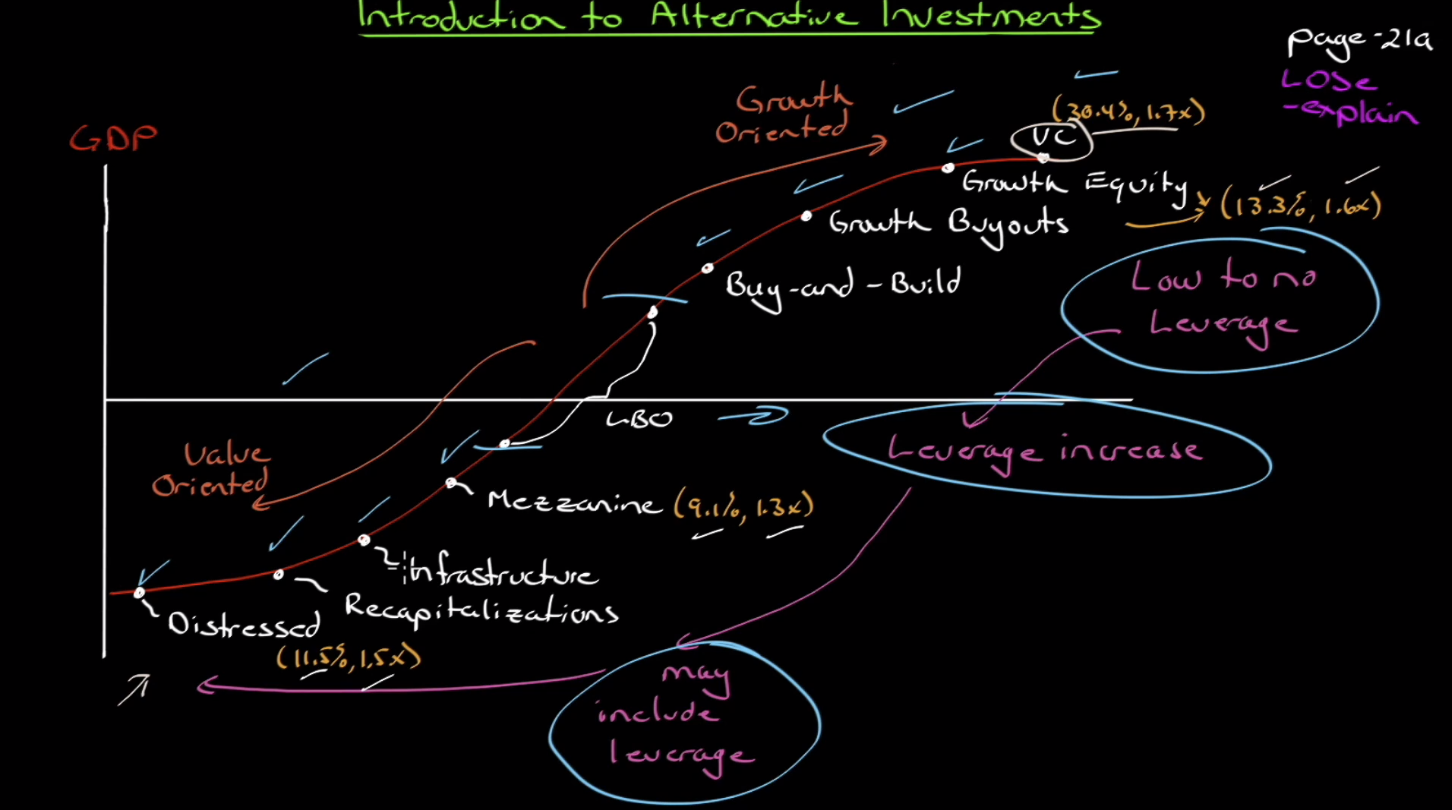 Introduction to Alternative Investments
page-21a
LOSe
-explain
GDP
Growth
Oriented
(30.4%, 1.7x)
VC
Growth Equity
(13.3%, 1.6x)
Growth Buyouts
Buy-and-Build
Low to no
Leverage
LBO
Leverage increase
Value
Oriented
Mezzanine (9.1%, 1.3x)
Infrastructure
Recapitalizations
Distressed
(11.5%, 1.5x)
may
include
leverage